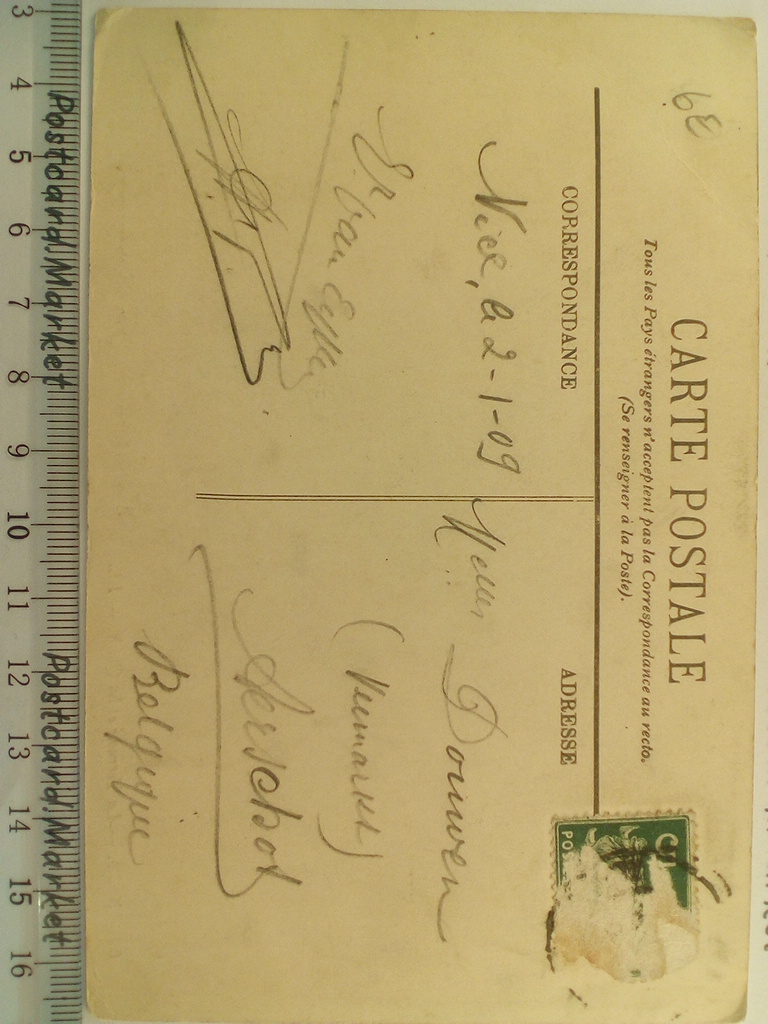 CARTE POSTALE
Tous les Pays étrangers n'acceptent pas la Correspondance au recto.
(Se renseigner à la Poste).
CORRESPONDANCE
ADRESSE
Nice, le 2-1-09
Douwen
Aerschot
Belgique
PO
3 4 5 6 7 8 9 10 11 12 13 14 15 16
Postcard Market Postcard Market